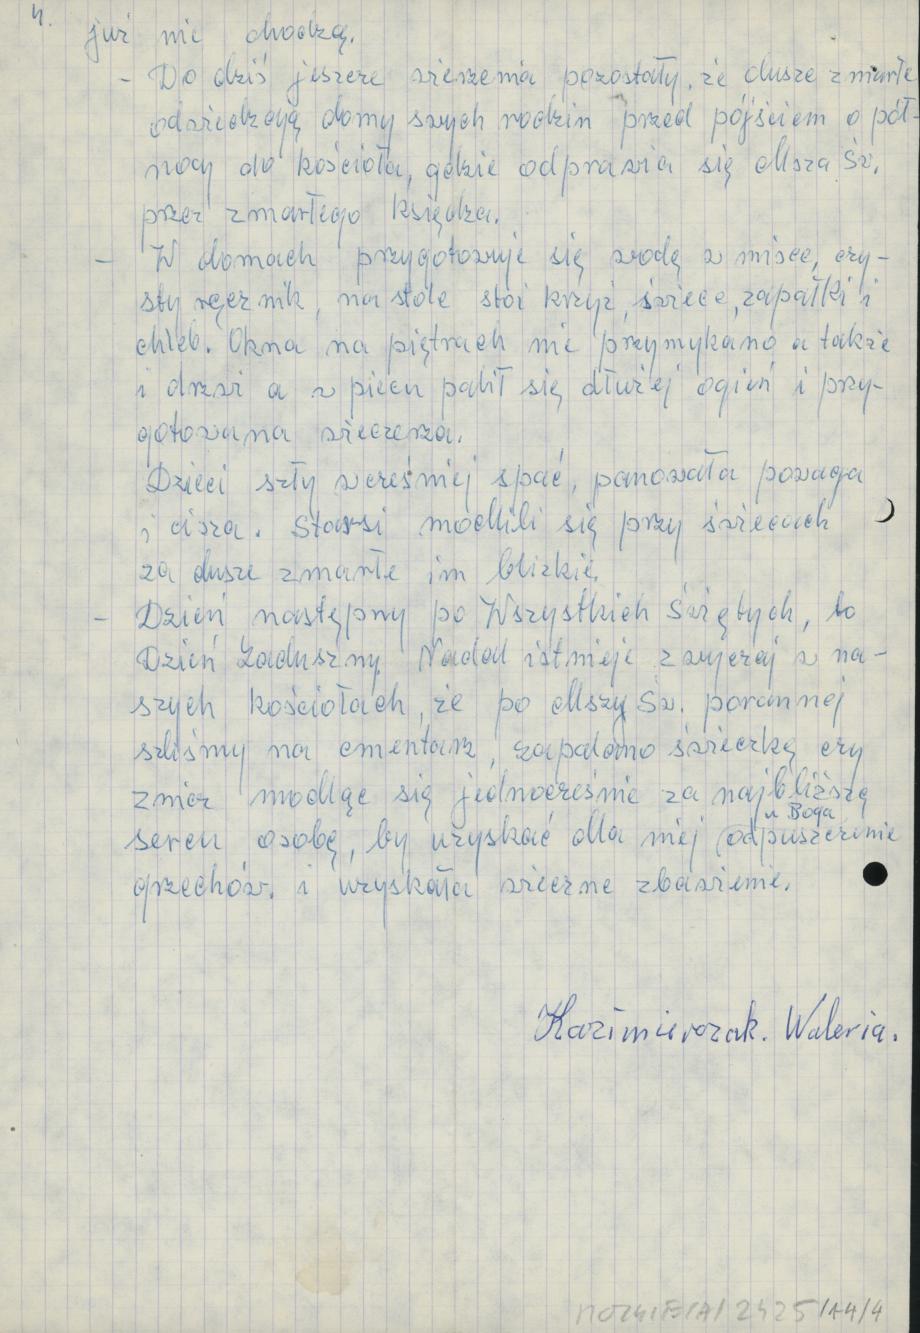 4.
już nie chodzą.
- Do dziś jeszcze wierzenia pozostały, że dusze zmarłe
odwiedzają domy swych rodzin przed pójściem o pół-
nocy do kościoła, gdzie odprawia się Msza Św.
przez zmarłego księdza.
- W domach przygotowuje się wodę w misce, czy-
sty ręcznik, na stole stoi krzyż, świece, zapałki i
chleb. Okna na piętrach nie przymykano a także
i drzwi a w piecu palił się dłużej ogień i przy-
gotowana wieczerza.
Dzieci szły wcześniej spać, panowała powaga
i cisza. Starsi modlili się przy świecach
za dusze zmarłe im blizkie.
- Dzień następny po Wszystkich Świętych, to
Dzień Zaduszny. Nadal istnieje zwyczaj w na-
szych kościołach, że po Mszy Św. porannej
szliśmy na cmentarz, zapalano świeczkę czy
znicz modląc się jednocześnie za najbliższą
u Boga
sercu osobę, by uzyskać dla niej odpuszczenie
grzechów. i uzyskała wieczne zbawienie.
Kazimierczak. Waleria.
/14/4